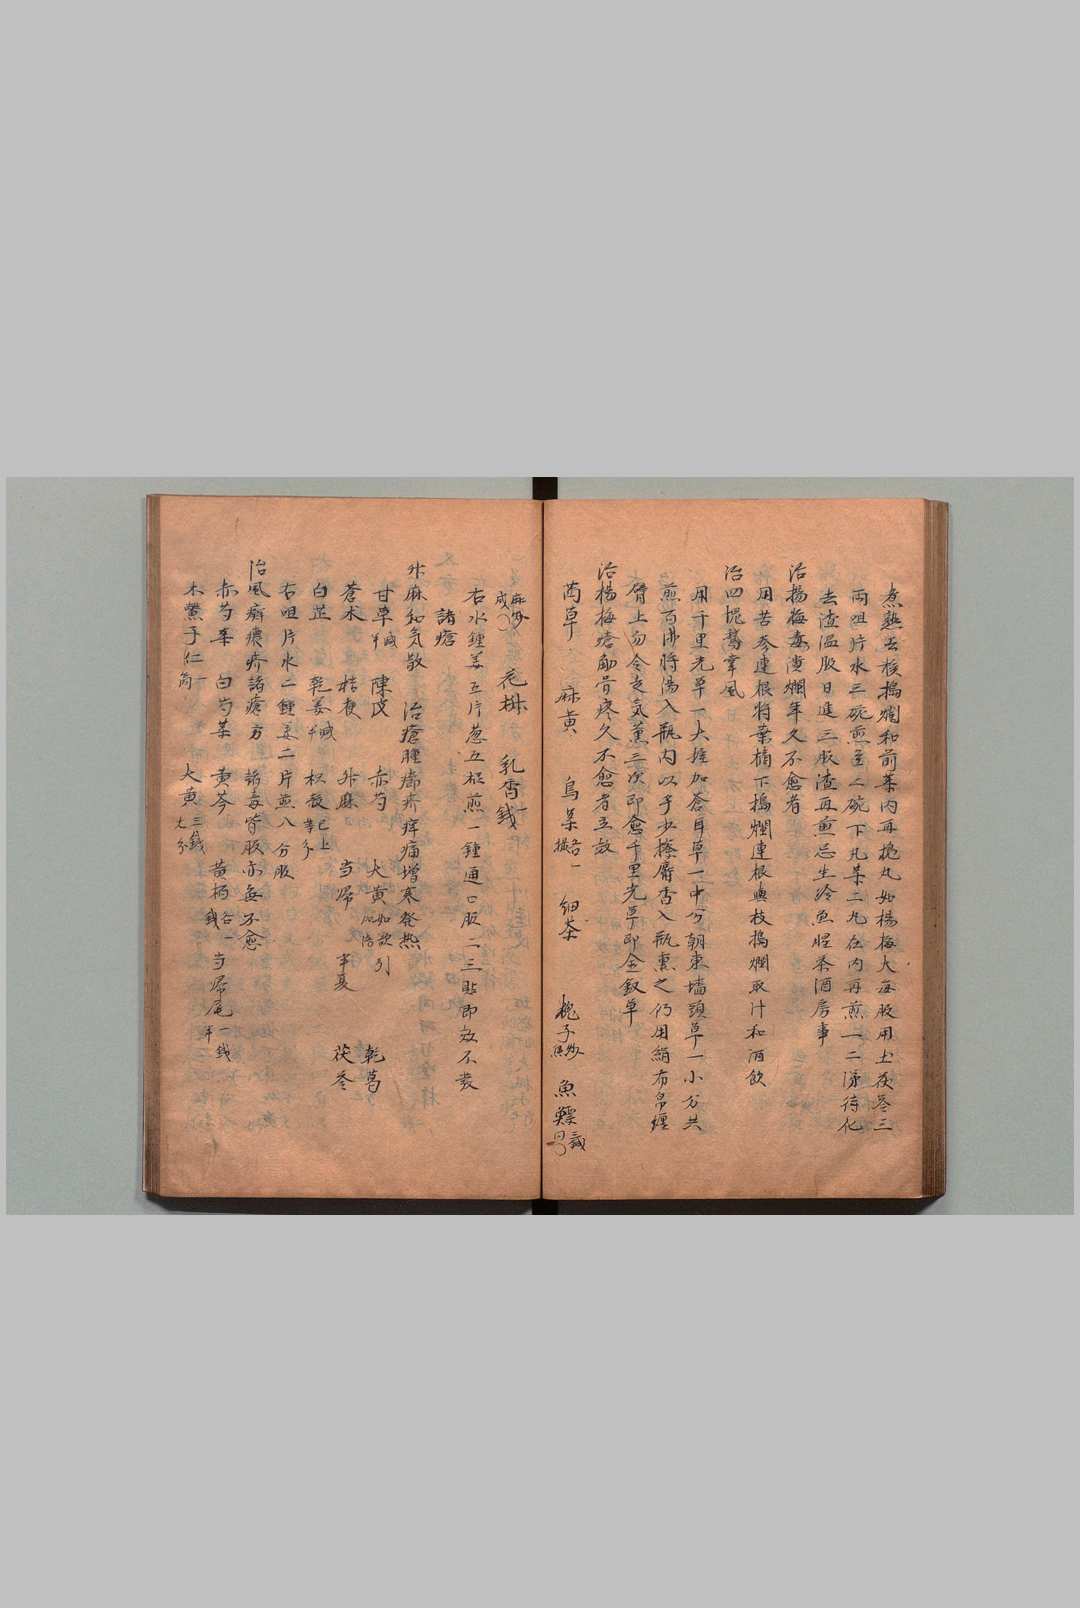 煮熟去核搗爛和前藥內再搗丸如楊梅大每服用土茯苓三
兩咀片水三碗煎至二碗下丸藥二丸在內再煎一二滾待化
去渣溫服日進三服渣再煎忌生冷魚腥茶酒房事
治楊梅毒潰爛年久不愈者
用苦參連根將葉摘下搗爛連根與枝搗爛取汁和酒飲
治四塊鵝掌風
用千里光草一大握加蒼耳草一中分朝東墻頭草一小分共
煎百沸將湯入瓶內以手少擦麝香入瓶熏之仍用絹布帛纏
臂上勿令走氣薰三次即愈千里光草即金釵草
治楊梅瘡筋骨疼久不愈者立效
茜草 麻黃 烏藥各一撮 細茶 槐子炒 魚鰾三戔
麻炒成 花椒 乳香一錢
右水鍾姜五片蔥五根煎一鍾通口服二三貼即效不發
諸瘡
升麻和気散 治瘡腫癤疥痒痛增寒發熱
甘草 陳皮 赤芍 大黃 乾葛
蒼朮 桔梗 升麻 当帰 半夏 茯苓
白芷 乾姜 枳殼已上
右咀片水二鍾姜二片煎八分服
治風癬癩疥諸瘡方 諸毒皆服亦無不愈
赤芍藥 白芍藥 黃芩 黃柏各一錢 当帰尾一錢半
木鱉子仁一箇 大黃三錢